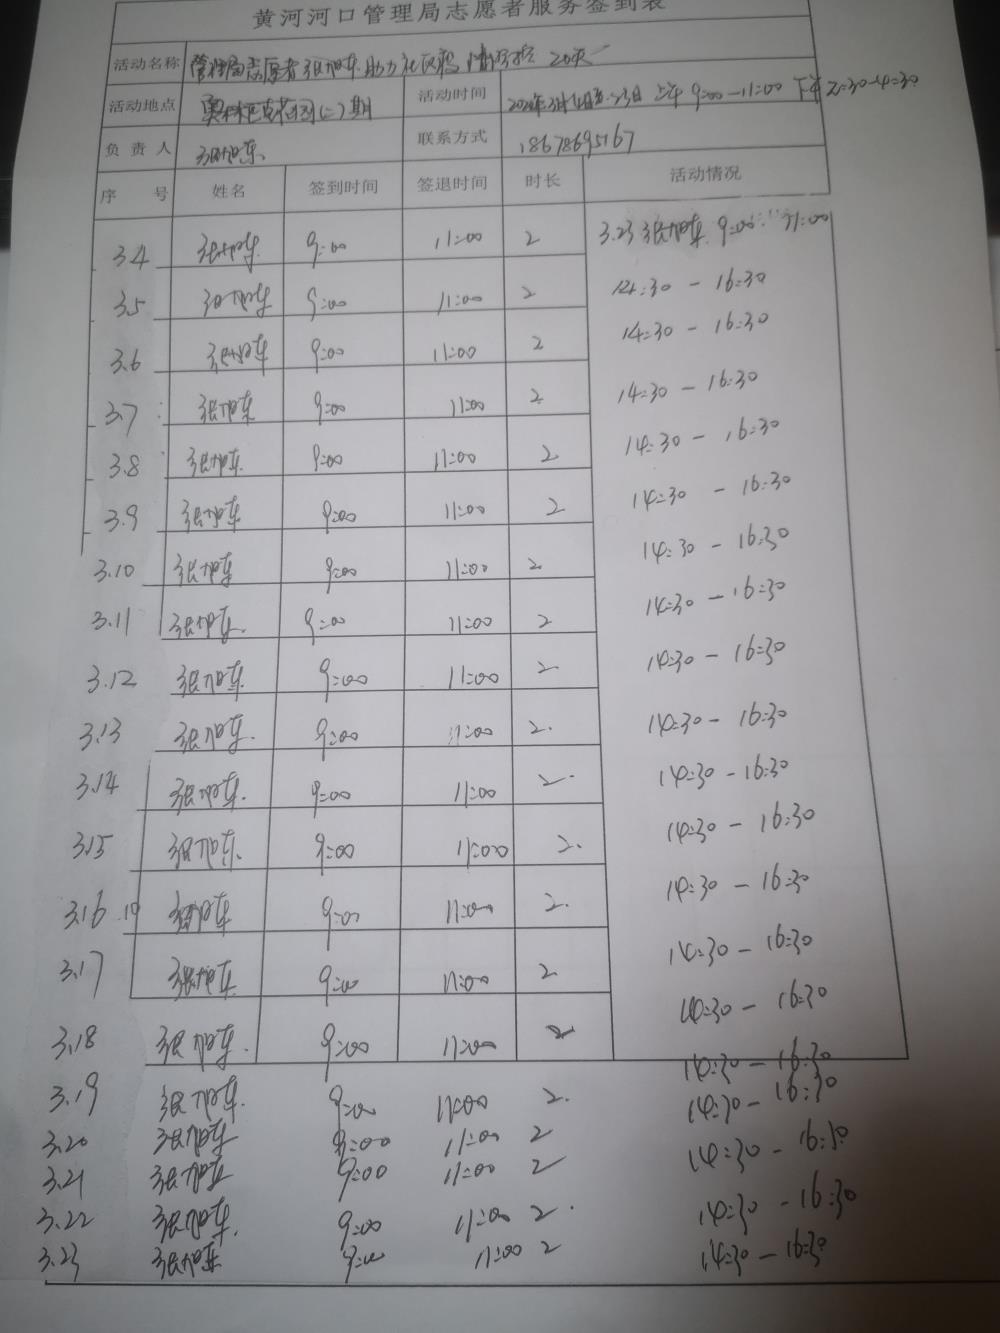 黄河河口管理局志愿者服务签到表
活动名称 管理局志愿者张旭东助力社区疫情防控 20天
活动地点 花园(二)期 活动时间 2020年3月4日至23日 上午 9:00-11:00 下午 2:30-4:30
负责人 张旭东 联系方式 18678695167
序号 姓名 签到时间 签退时间 时长 活动情况
3.4 张旭东 9:00 11:00 2 3.23 张旭东 9:00 11:00
3.5 张旭东 9:00 11:00 2 14:30 - 16:30
3.6 张旭东 9:00 11:00 2 14:30 - 16:30
3.7 张旭东 9:00 11:00 2 14:30 - 16:30
3.8 张旭东 9:00 11:00 2 14:30 - 16:30
3.9 张旭东 9:00 11:00 2 14:30 - 16:30
3.10 张旭东 9:00 11:00 2 14:30 - 16:30
3.11 张旭东 9:00 11:00 2 14:30 - 16:30
3.12 张旭东 9:00 11:00 2 14:30 - 16:30
3.13 张旭东 9:00 11:00 2. 14:30 - 16:30
3.14 张旭东 9:00 11:00 2. 14:30 - 16:30
3.15 张旭东 9:00 11:00 2. 14:30 - 16:30
3.16 张旭东 9:00 11:00 2. 14:30 - 16:30
3.17 张旭东 9:00 11:00 2 14:30 - 16:30
3.18 张旭东. 9:00 11:00 2 14:30 - 16:30
3.19 张旭东. 9:00 11:00 2. 14:30 - 16:30
3.20 张旭东 9:00 11:00 2 14:30 - 16:30
3.21 张旭东 9:00 11:00 2 14:30 - 16:30
3.22 张旭东. 9:00 11:00 2. 14:30 - 16:30
3.23 张旭东 9:00 11:00 2 14:30 - 16:30